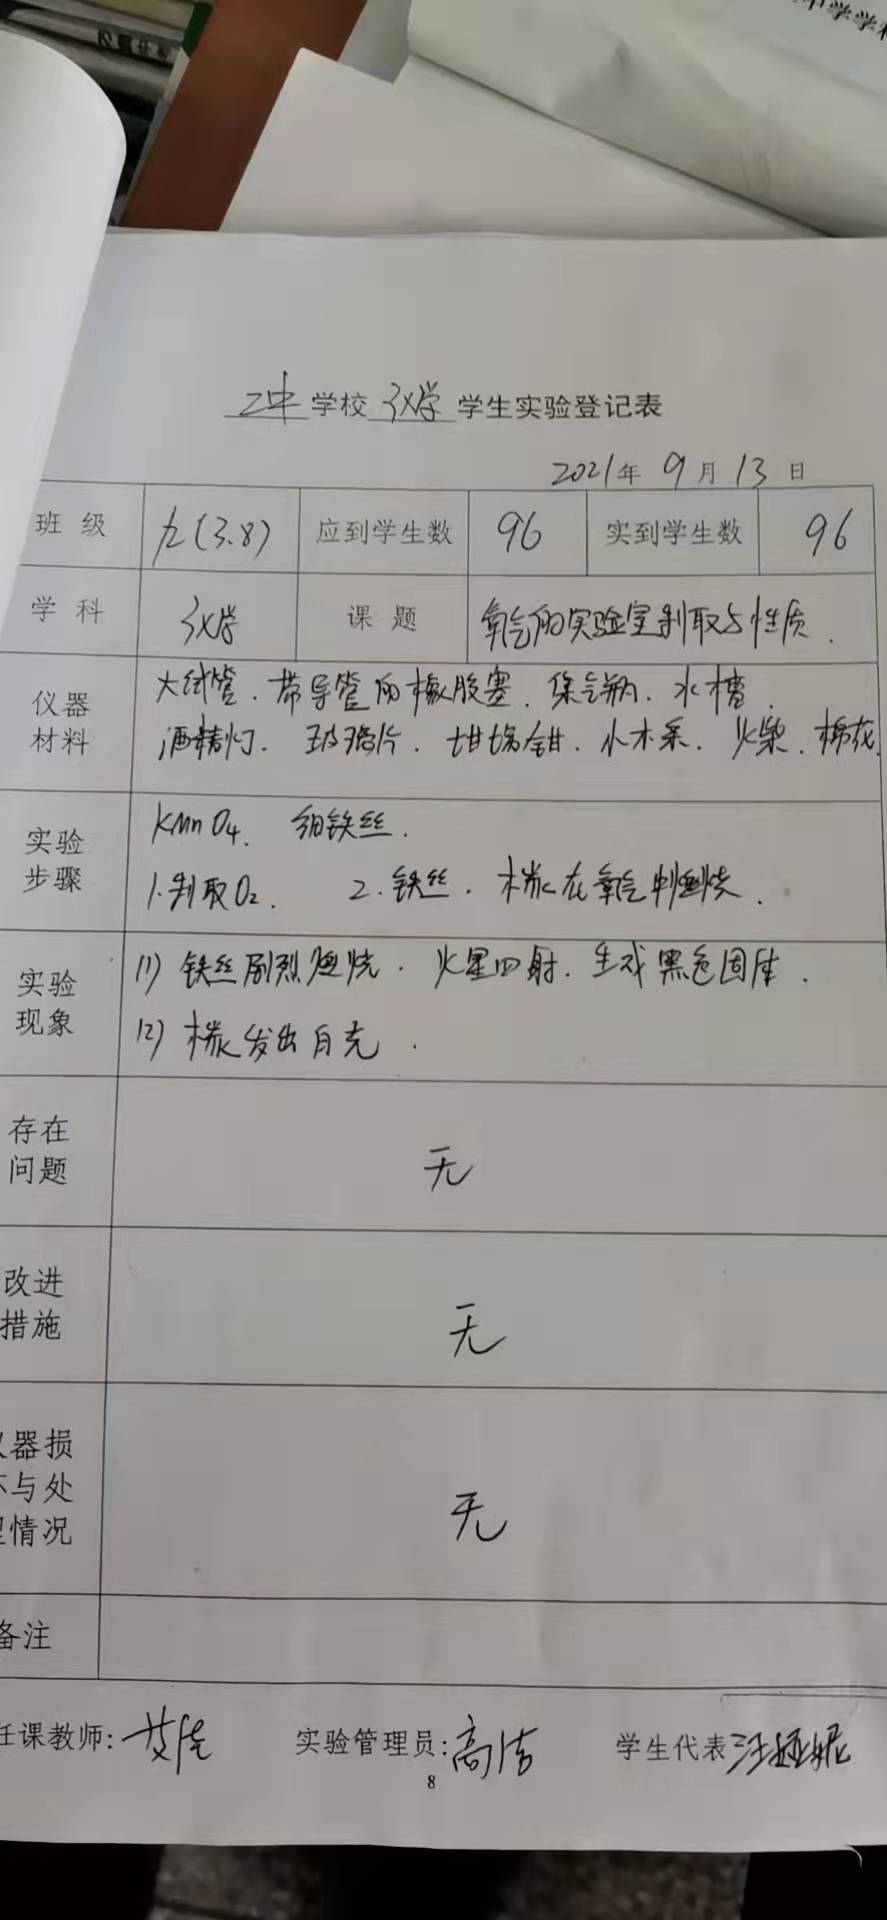 中学学科
二中学校化学学生实验登记表
2021年9月13日
班级 九(3.8) 应到学生数 96 实到学生数 96
学科 化学 课题 氧气的实验室制取与性质.
仪器
材料
大试管、带导管的橡胶塞、集气瓶、水槽.
酒精灯、玻璃片、坩埚钳、小木条、火柴、棉花.
实验
步骤
KMnO4、细铁丝.
1.制取O2. 2.铁丝、木炭在氧气中燃烧.
实验
现象
(1) 铁丝剧烈燃烧、火星四射、生成黑色固体.
(2) 木炭发出白光.
存在
问题
无
改进
措施
无
器损
与处
情况
无
备注
任课教师: 实验管理员:高洁 学生代表
8